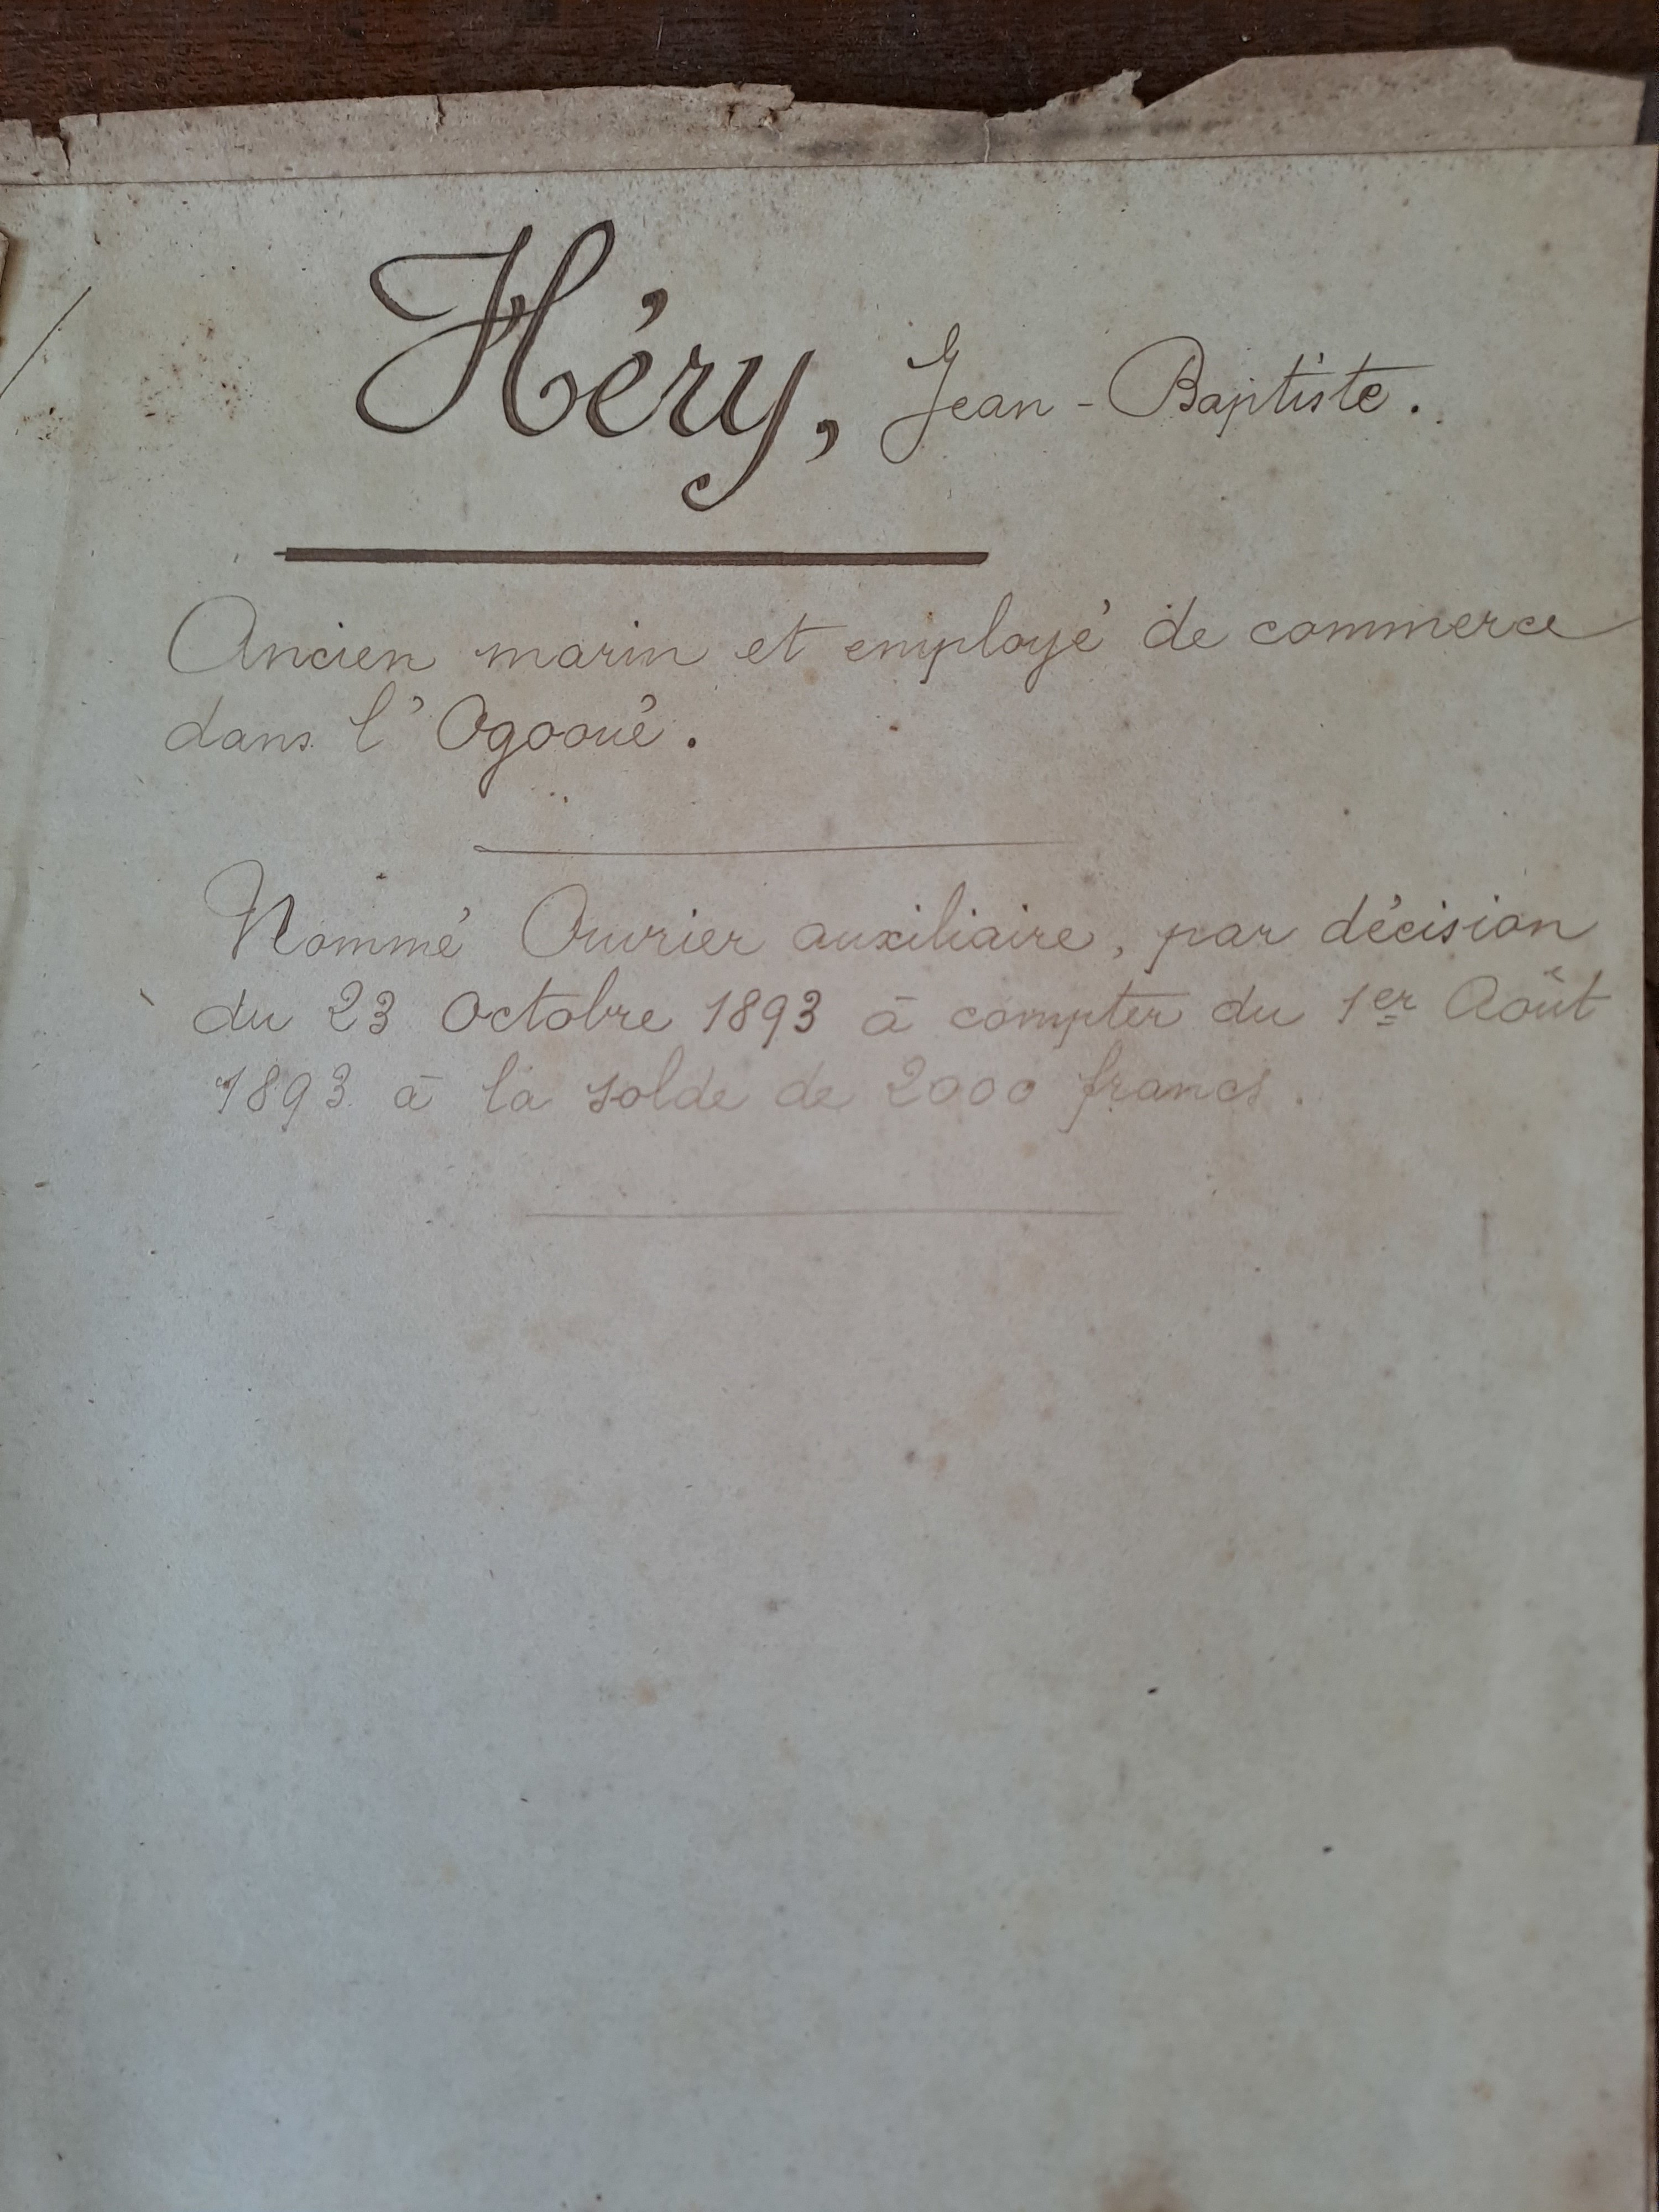 Héry, Jean-Baptiste.
Ancien marin et employé de commerce
dans l'Ogooué.
Nommé Ouvrier auxiliaire, par décision
du 23 Octobre 1893 à compter du 1er Août
1893 à la solde de 2000 francs.